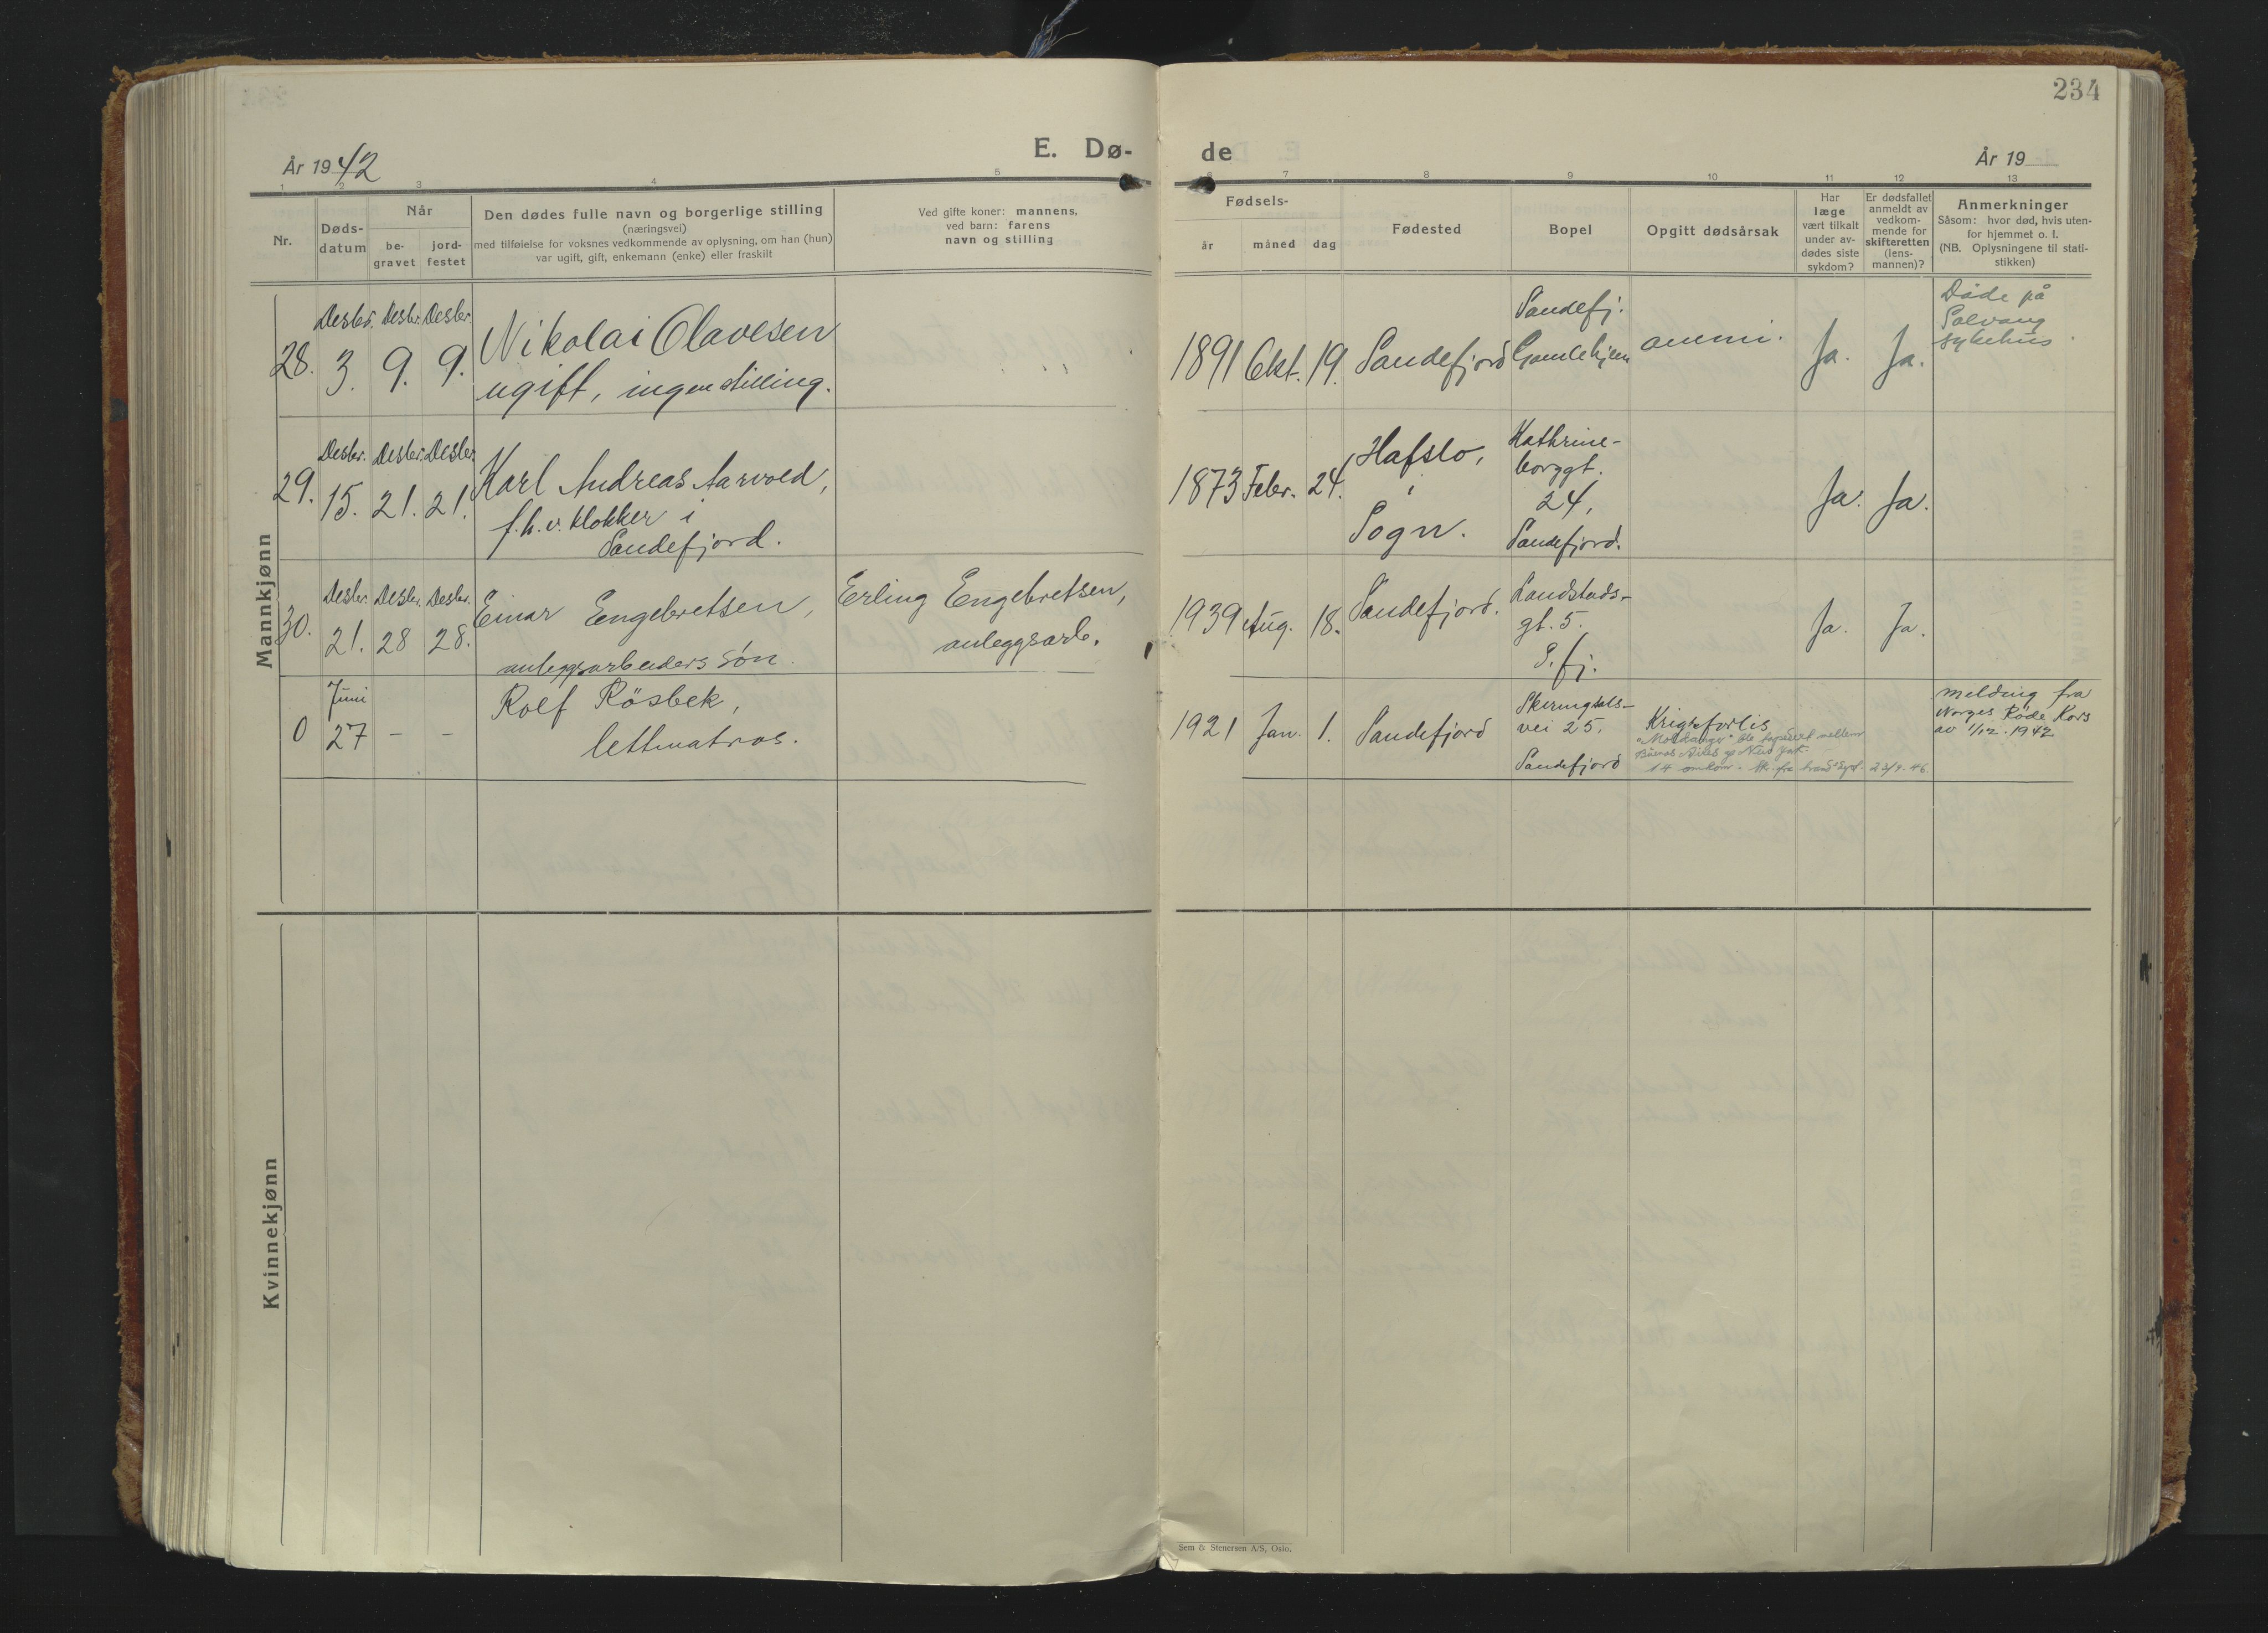 234
År 19 42
E. Dø-
de
År 19
1 2 3 4 5
6 7 8 9 10 11 12 13
Nr.
Døds-
datum
Når
be-
gravet
jord-
festet
Den dødes fulle navn og borgerlige stilling
(næringsvei)
med tilføielse for voksnes vedkommende av oplysning, om han (hun)
var ugift, gift, enkemann (enke) eller fraskilt
Ved gifte koner: mannens,
ved barn: farens
navn og stilling
Fødsels-
år
måned
dag
Fødested
Bopel
Opgitt dødsårsak
Har
læge
vært tilkalt
under av-
dødes siste
sykdom?
Er dødsfallet
anmeldt av
vedkom-
mende for
skifteretten
(lens-
mannen)?
Anmerkninger
Såsom: hvor død, hvis uten-
for hjemmet o. l.
(NB. Oplysningene til stati-
stikken)
Mannkjønn
28.
Desbr.
3.
Desbr.
9.
Desbr.
9.
Nikolai Olavesen
ugift, ingen stilling.
1891
Okt.
19.
Sandefjord
Sandefj.
Gamlehjem
anemi.
Ja.
Ja.
Døde på
Solvang
sykehus.
29.
Desbr.
15.
Desbr.
21.
Desbr.
21.
Karl Andreas Aarvold,
f.h.v. klokker i
Sandefjord.
1873
Febr.
24.
Hafslo,
i
Sogn.
Kathrine-
borggt.
24,
Sandefjord.
Ja.
Ja.
30.
Desbr.
21.
Desbr.
28
Desbr.
28.
Einar Engebretsen,
anleggsarbeiders søn.
Erling Engebretsen,
anleggsarb.
1939
Aug.
18.
Sandefjord.
Landstads-
gt. 5.
S.fj.
Ja.
Ja.
0
Juni
27
-
-
Rolf Røsbek,
lettmatros.
1921
Jan.
1.
Sandefjord
Skiringsals-
vei 25.
Sandefjord
Krigsforlis
"Moldanger" ble torpedert mellem
Buenos Aires og New York.
14 omkom. Skr. fra 23/9-46.
Melding fra
Norges Røde Kors
av 1/12-1942
Kvinnekjønn
Sem & Stenersen A/S, Oslo.